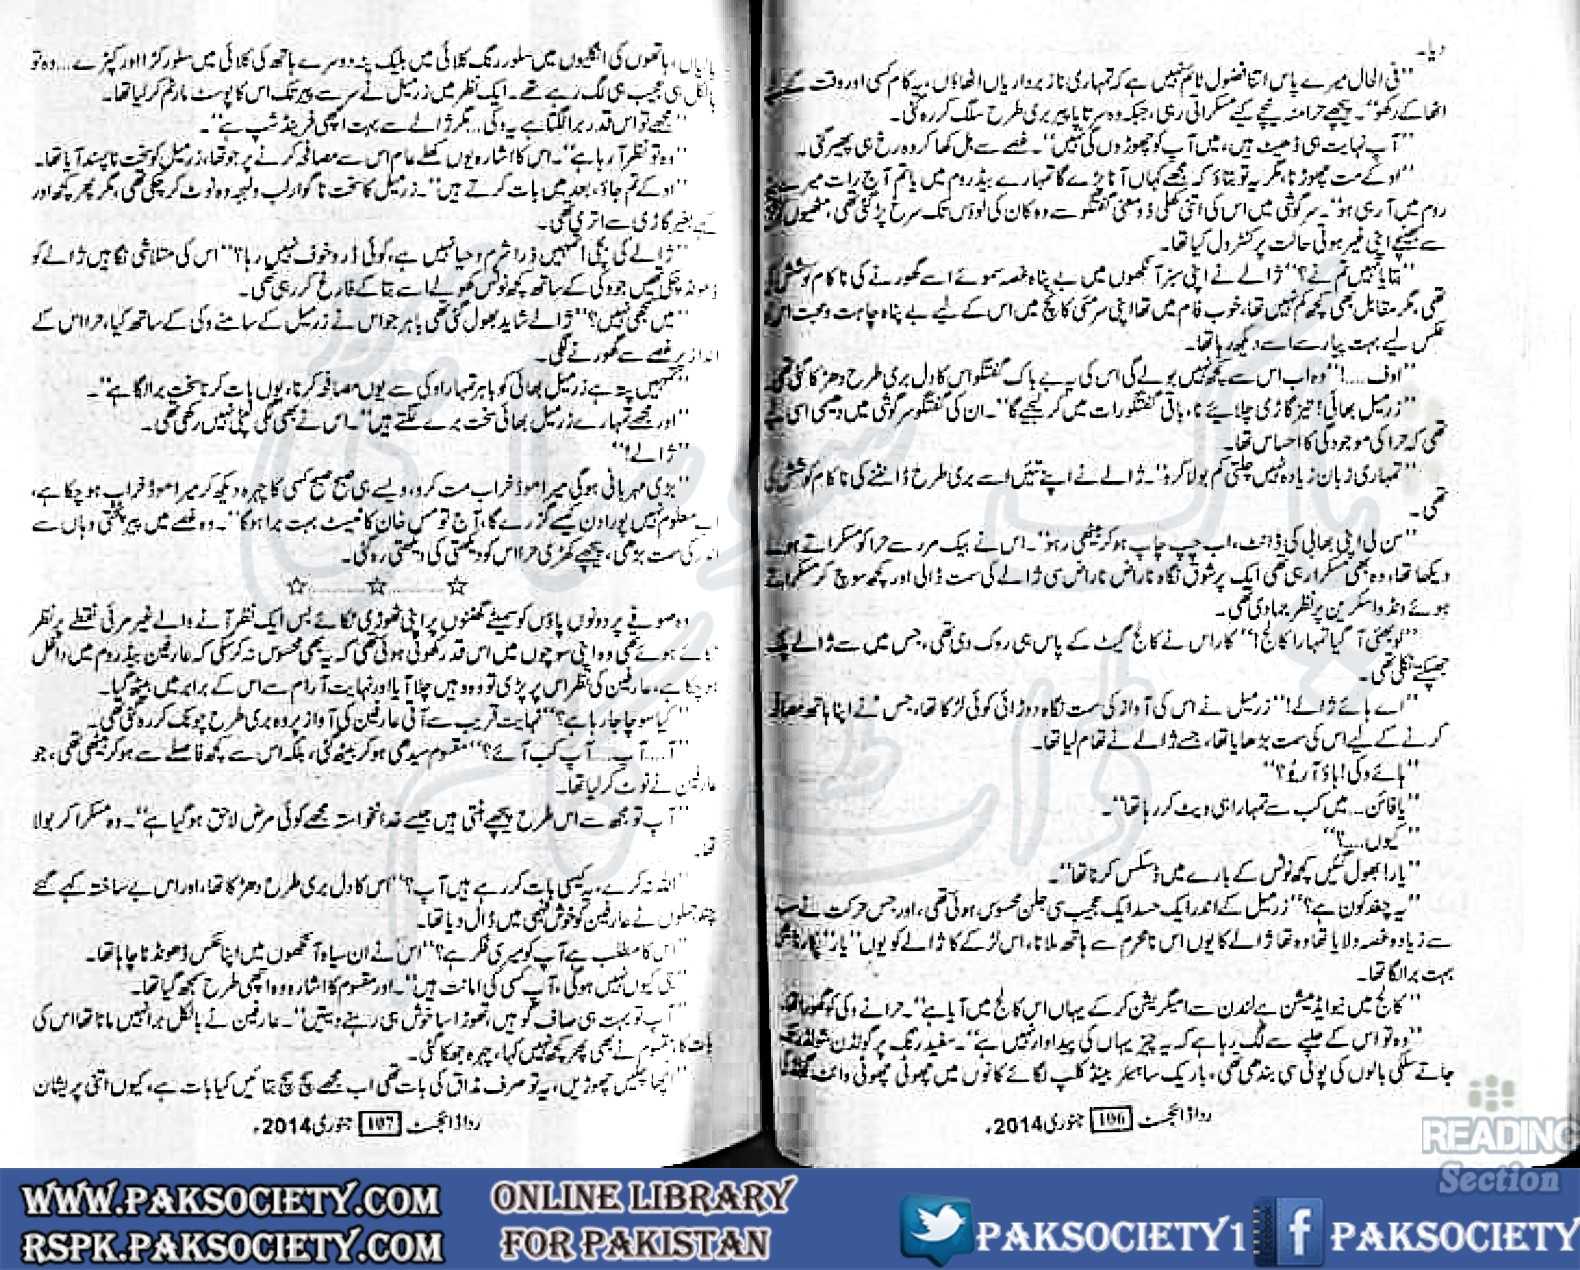 دیا۔
”فی الحال میرے پاس اتنا فضول ٹائم نہیں ہے کہ تمہاری ناز برداریاں اٹھاؤں، یہ کام کسی اور وقت کے لیے
اٹھا کے رکھو“۔ پیچھے حرا منہ نیچے کیے مسکراتی رہی، جبکہ وہ سر تا پا پیر بری طرح سلگ کر رہ گئی۔
”آپ نہایت ہی ڈھیٹ ہیں، میں آپ کو چھوڑوں گی نہیں“۔ غصے سے بل کھا کر وہ رخ ہی پھیر گئی۔
”اوکے مت چھوڑنا، مگر یہ تو بتاؤ کہ مجھے کہاں آنا پڑے گا تمہارے بیڈ روم میں یا تم آج رات میرے
روم میں آ رہی ہو“۔ سرگوشی میں اس کی اتنی کھلی ذو معنی گفتگو سے وہ کان کی لوؤں تک سرخ پڑ گئی تھی، مٹھیوں کو
سے بھینچے اپنی غیر ہوتی حالت پر کنٹرول کیا تھا۔
”بتایا نہیں تم نے؟“ ژالے نے اپنی سبز آنکھوں میں بے پناہ غصہ سموئے اسے گھورنے کی ناکام کوشش کی
تھی، مگر مقابل بھی کچھ کم نہیں تھا، خوب فارم میں تھا اپنی سرمئی کانچ میں اس کے لیے بے پناہ چاہت و محبت اس
عکس لیے بہت پیار سے اسے دیکھ رہا تھا۔
”اوف....!“ وہ اب اس سے کچھ نہیں بولے گی اس کی یہ بے باک گفتگو اس کا دل بری طرح دھڑکا گئی تھی
”زرمیل بھائی! تیز گاڑی چلایئے نا، باقی گفتگو رات میں کر لیجیے گا“۔ ان کی گفتگو سرگوشی میں دھیمی اسی لیے
تھی کہ حرا کی موجودگی کا احساس تھا۔
”تمہاری زبان زیادہ نہیں چلتی کم بولا کرو“۔ ژالے نے اپنے تئیں اسے بری طرح ڈانٹنے کی ناکام کوشش کی
تھی۔
”سن لی اپنی بھابی کی ڈانٹ، اب چپ چاپ ہو کر بیٹھی رہو“۔ اس نے بیک مرر سے حرا کو مسکراتے ہوئے
دیکھا تھا، وہ بھی مسکرا رہی تھی ایک پرشوق نگاہ ناراض ناراض سی ژالے کی سمت ڈالی اور کچھ سوچ کر مسکراتے
ہوئے ونڈ اسکرین پر نظر جما دی تھی۔
”لو بھئی آ گیا تمہارا کالج!“ کار اس نے کالج گیٹ کے پاس ہی روک دی تھی، جس میں سے ژالے پلک
جھپکتے نکلی تھی۔
”اے ہائے ژالے!“ زرمیل نے اس کی آواز کی سمت نگاہ دوڑائی کوئی لڑکا تھا، جس نے اپنا ہاتھ مصافحہ
کرنے کے لیے اس کی سمت بڑھایا تھا، جسے ژالے نے تھام لیا تھا۔
”ہائے وکی! ہاؤ آر یو؟“
”یا فائن... میں کب سے تمہارا ہی ویٹ کر رہا تھا“۔
”کیوں....؟“
”یار! بھول گئیں کچھ نوٹس کے بارے میں ڈسکس کرنا تھا“۔
”یہ چغد کون ہے؟“ زرمیل کے اندر ایک حسد ایک عجیب سی جلن محسوس ہوئی تھی، اور جس حرکت نے سب
سے زیادہ غصہ دلایا تھا وہ تھا ژالے کا یوں اس نامحرم سے ہاتھ ملانا، اس لڑکے کا ژالے کو یوں ”یار“ پکارنا
بہت برا لگا تھا۔
”کالج میں نیو ایڈمیشن ہے لندن سے امیگریشن کر کے یہاں اس کالج میں آیا ہے“۔ حرا نے وکی کو گھورا تھا۔
”وہ تو اس کے حلیے سے لگ رہا ہے کہ یہ چیز یہاں کی پیداوار نہیں ہے“۔ سفید رنگ پر گولڈن شولڈر تک
جاتے سلکی بالوں کی پونی سی بندھی تھی، باریک سا ہیئر بینڈ کلپ لگائے کانوں میں چھوٹی چھوٹی وائٹ
ردا ڈائجسٹ 106 جنوری 2014ء
بالیاں، ہاتھوں کی انگلیوں میں سلور رنگ کلائی میں بلیک پٹہ دوسرے ہاتھ کی کلائی میں سلور کڑا اور کپڑے.... وہ تو
بالکل ہی عجیب ہی لگ رہے تھے۔ ایک نظر میں زرمیل نے سر سے پیر تک اس کا پوسٹ مارٹم کر لیا تھا۔
”مجھے تو اس قدر برا لگتا ہے یہ وکی... مگر ژالے سے بہت اچھی فرینڈ شپ ہے“۔
”وہ تو نظر آ رہا ہے“۔ اس کا اشارہ یوں کھلے عام اس سے مصافحہ کرنے پر جو تھا، زرمیل کو سخت ناپسند آیا تھا۔
”اوکے تم جاؤ، بعد میں بات کرتے ہیں“۔ زرمیل کا سخت ناگوار لب و لہجہ وہ نوٹ کر چکی تھی، مگر پھر کچھ اور
کہے بغیر گاڑی سے اتری تھی۔
”ژالے کی بچی! تمہیں ذرا شرم و حیا نہیں ہے، کوئی ڈر و خوف نہیں رہا؟“ اس کی متلاشی نگاہیں ژالے کو
ڈھونڈ چکی تھیں جو وکی کے ساتھ کچھ نوٹس کھولے اسے بتا کے فارغ کر رہی تھی۔
”میں سمجھی نہیں؟“ ژالے شاید بھول گئی تھی باہر جو اس نے زرمیل کے سامنے وکی کے ساتھ کیا، حرا اس کے
انداز پر غصے سے گھورنے لگی۔
”تمہیں پتہ ہے زرمیل بھائی کو باہر تمہارا وکی سے یوں مصافحہ کرنا، یوں بات کرنا سخت برا لگا ہے“۔
”اور مجھے تمہارے زرمیل بھائی سخت برے لگتے ہیں“۔ اس نے بھی لگی لپٹی نہیں رکھی تھی۔
”ژالے!“
”بڑی مہربانی ہو گی میرا موڈ خراب مت کرو، ویسے ہی صبح صبح کسی کا چہرہ دیکھ کر میرا موڈ خراب ہو چکا ہے،
اب معلوم نہیں پورا دن کیسے گزرے گا، آج تو مس خان کا ٹیسٹ بہت برا ہو گا“۔ وہ غصے میں پیر پٹختی وہاں سے
اندر کی سمت بڑھی، پیچھے کھڑی حرا اس کو دیکھتی کی دیکھتی رہ گئی۔
☆..........☆..........☆
وہ صوفے پر دونوں پاؤں کو سمیٹے گھٹنوں پر اپنی ٹھوڑی ٹکائے بس ایک نظر آنے والے غیر مرئی نقطے پر نظر
ٹکائے ہوئے تھی وہ اپنی سوچوں میں اس قدر کھوئی ہوئی تھی کہ یہ بھی محسوس نہ کر سکی کہ عارفین بیڈ روم میں داخل
ہو چکا ہے، عارفین کی نظر اس پر پڑی تو وہ وہیں چلا آیا اور نہایت آرام سے اس کے برابر میں بیٹھ گیا۔
”کیا سوچا جا رہا ہے؟“ نہایت قریب سے آتی عارفین کی آواز پر وہ بری طرح چونک کر رہ گئی تھی۔
”آ....آپ... آپ کب آئے؟“ مقسوم سیدھی ہو کر بیٹھ گئی، بلکہ اس سے کچھ فاصلے سے ہو کر بیٹھی تھی، جو
عارفین نے نوٹ کر لیا تھا۔
”آپ تو مجھ سے اس طرح پیچھے ہٹتی ہیں جیسے خدانخواستہ مجھے کوئی مرض لاحق ہو گیا ہے“۔ وہ مسکرا کر بولا
تھا۔
”اللہ نہ کرے، یہ کیسی بات کر رہے ہیں آپ؟“ اس کا دل بری طرح دھڑکا تھا، اور اس بے ساختہ کہے گئے
چند جملوں نے عارفین کو خوش فہمی میں ڈال دیا تھا۔
”اس کا مطلب ہے آپ کو میری فکر ہے؟“ اس نے ان سیاہ آنکھوں میں اپنا عکس ڈھونڈنا چاہا تھا۔
”جی کیوں نہیں ہو گی، آپ کسی کی امانت ہیں“۔ اور مقسوم کا اشارہ وہ اچھی طرح سمجھ گیا تھا۔
”آپ تو بہت ہی صاف گو ہیں، تھوڑا سا خوش ہی رہنے دیتیں“۔ عارفین نے بالکل برا نہیں مانا تھا اس کی
بات کا، مقسوم نے بھی پھر کچھ نہیں کہا، چہرہ جھکا گئی۔
”اچھا پلیس چھوڑیں، یہ تو صرف مذاق کی بات تھی اب مجھے سچ سچ بتائیں کیا بات ہے، کیوں اتنی پریشان
ردا ڈائجسٹ 107 جنوری 2014ء
پاک سوسائٹی ڈاٹ کام
READING
Section
WWW.PAKSOCIETY.COM
RSPK.PAKSOCIETY.COM
ONLINE LIBRARY
FOR PAKISTAN
PAKSOCIETY1
PAKSOCIETY